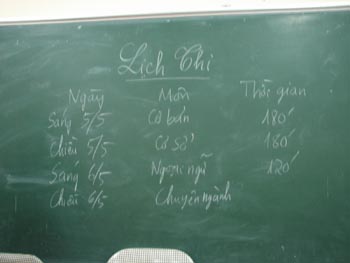 Lịch Thi
Ngày Môn Thời gian
Sáng 5/5 Cơ bản 180'
Chiều 5/5 Cơ sở 180'
Sáng 6/5 Ngoại ngữ 120'
Chiều 6/5 Chuyên ngành